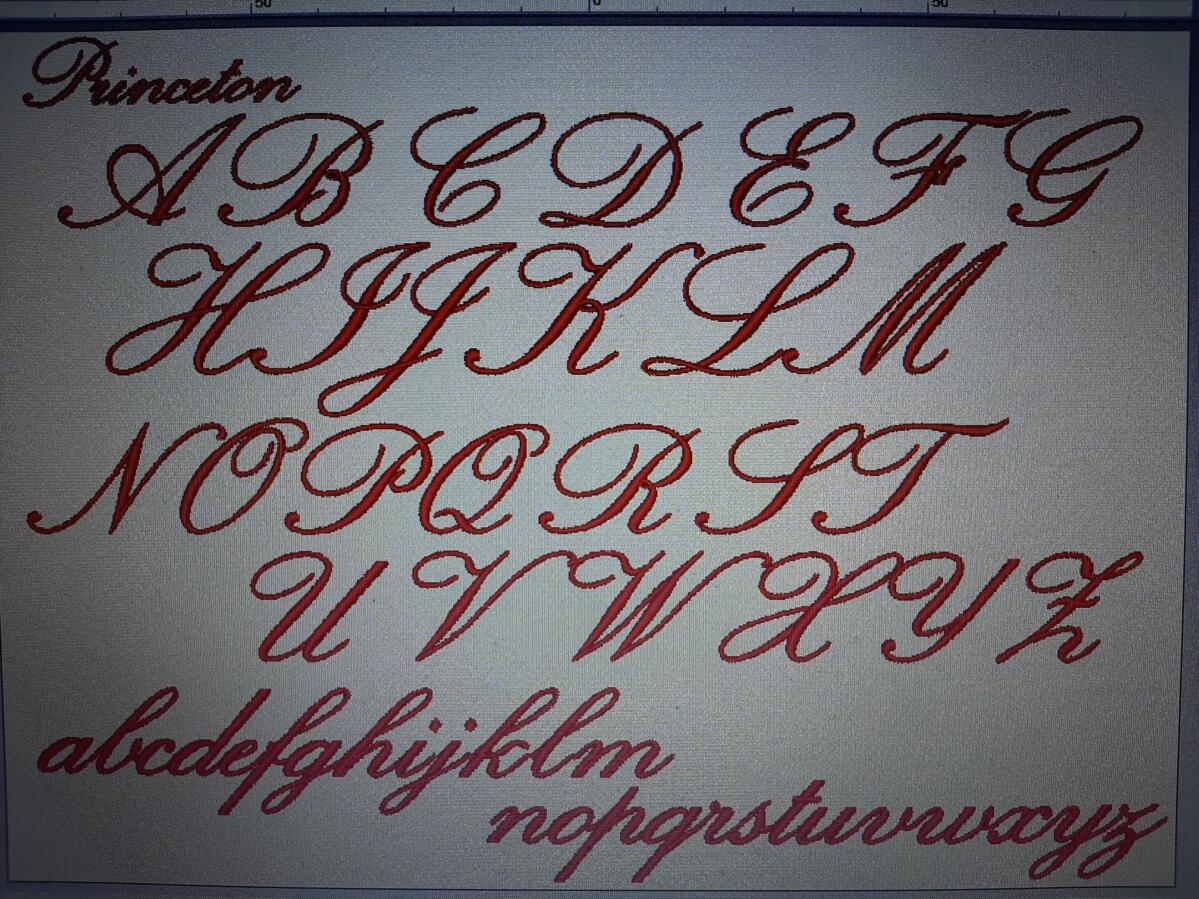 50 0 50
Princeton
A B C D E F G
H I J K L M
N O P Q R S T
U V W X Y Z
abcdefghijklm
nopqrstuvwxyz